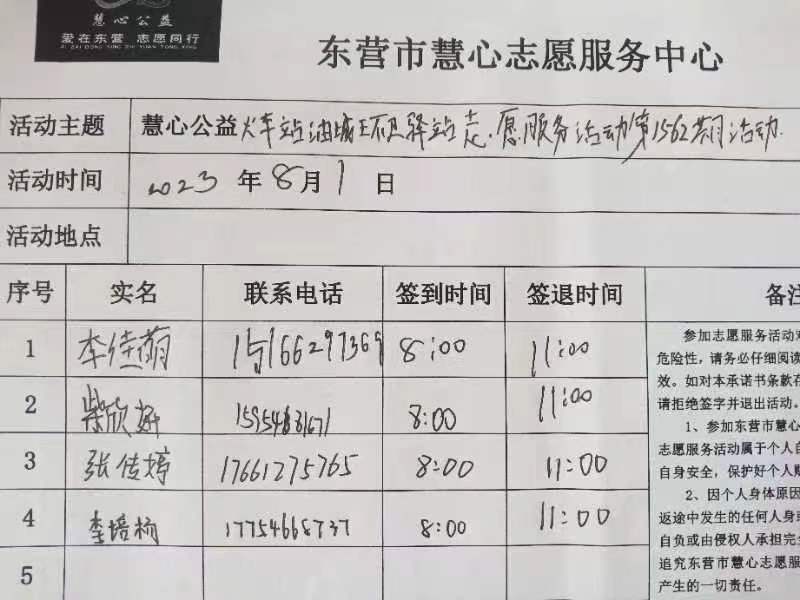 慧心公益
爱在东营 志愿同行
AI ZAI DONG YING ZHI YUAN TONG XING
东营市慧心志愿服务中心
活动主题 慧心公益火车站油城环卫驿站志愿服务活动第1562期活动
活动时间 2023 年 8 月 1 日
活动地点
序号 实名 联系电话 签到时间 签退时间 备注
1 李佳萌 15166297369 8:00 11:00
2 柴欣妍 15954831671 8:00 11:00
3 张传婷 17661275765 8:00 11:00
4 李培楠 17754668737 8:00 11:00
5
参加志愿服务活动
危险性，请务必仔细阅读
效。如对本承诺书条款在
请拒绝签字并退出活动。
1、参加东营市慧心
志愿服务活动属于个人自
自身安全，保护好个人财
2、因个人身体原因
返途中发生的任何人身
自负或由侵权人承担完全
追究东营市慧心志愿服
产生的一切责任。